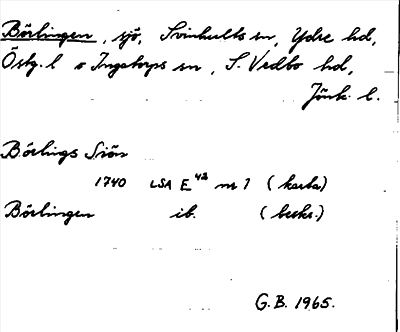 Börlingen, sjö, Svinhults sn, Ydre hd,
Östg. l o Ingatorps sn, S. Vedbo hd,
Jönk. l.
Börlings Siön
1740 LSA E 42 nr 1 (karta)
Börlingen ib. (beskr.)
G.B. 1965.